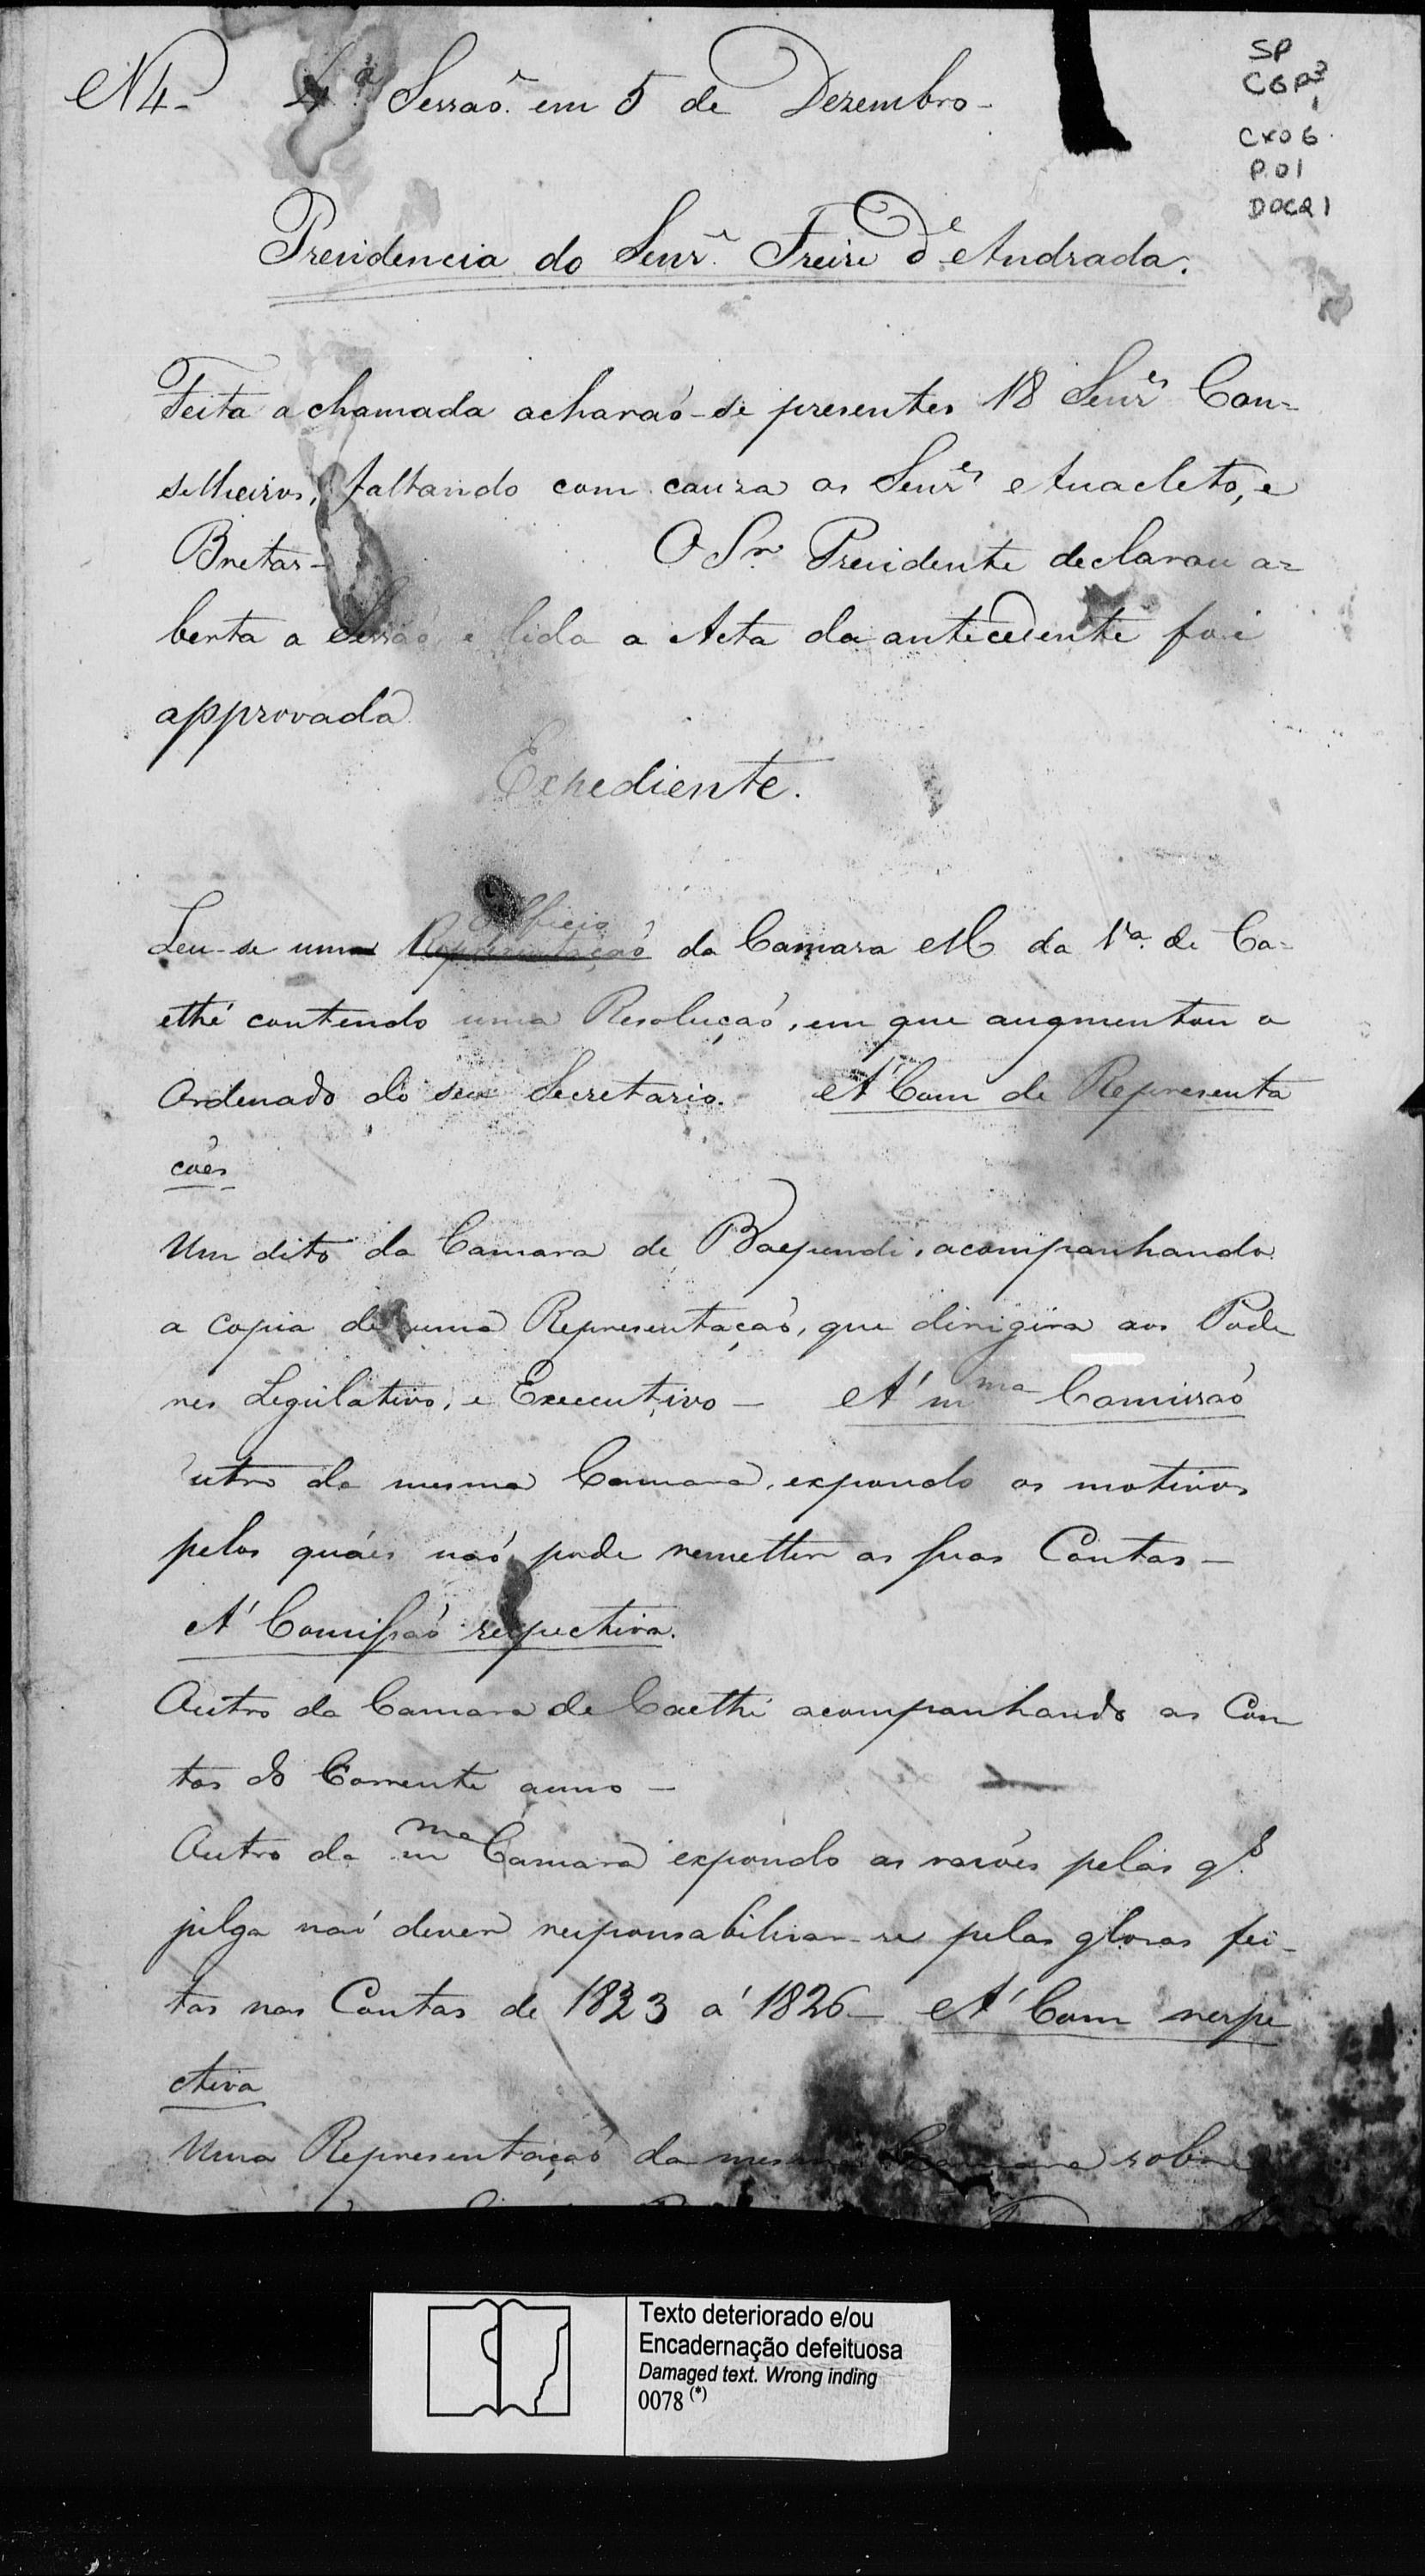 N 4. 4.ª Sessaõ. em 5 de Dezembro.
SP
CGP³
1
CX06
P.01
DOC21
Presidencia do Senr. Freire d'Andrada.
Feita a chamada acharaõ-se presentes 18 Senr.es Con=
selheiros, faltando com cauza os Senr.es Anacleto, e
Bretas- O Sr. Presidente declarou a=
berta a Sessaõ, e lida a Acta da antecedente foi
approvada
Expediente.
Officio
Leu-se uma Representaçaõ da Camara M da Vª. de Ca=
ethé contendo uma Resoluçaõ, em que augmentou o
Ordenado do seu Secretario. A' Com de Representa
coẽs
Um dito da Camara de Baependi, acompanhando
a copia de uma Representaçaõ, que dirigira aos Pode
res Legislativo, e Executivo - A' m.ma Comissaõ
utro da mesma Camara, expondo os motivos
pelos quáes naõ pode remetter as suas Contas-
A' Comissaõ respectiva.
Outro da Camara de Caethé acompanhando as Con
tas do Corrente anno -
Outro da m.ma Camara expondo as rasoẽs pelas q.s
julga naõ dever responsabilisar-se pelas glosas fei-
tas nas Contas de 1823 á 1826- A' Com respe
ctiva
Uma Representaçaõ da mesma Camara sobre
Texto deteriorado e/ou
Encadernação defeituosa
Damaged text. Wrong inding
0078 (*)